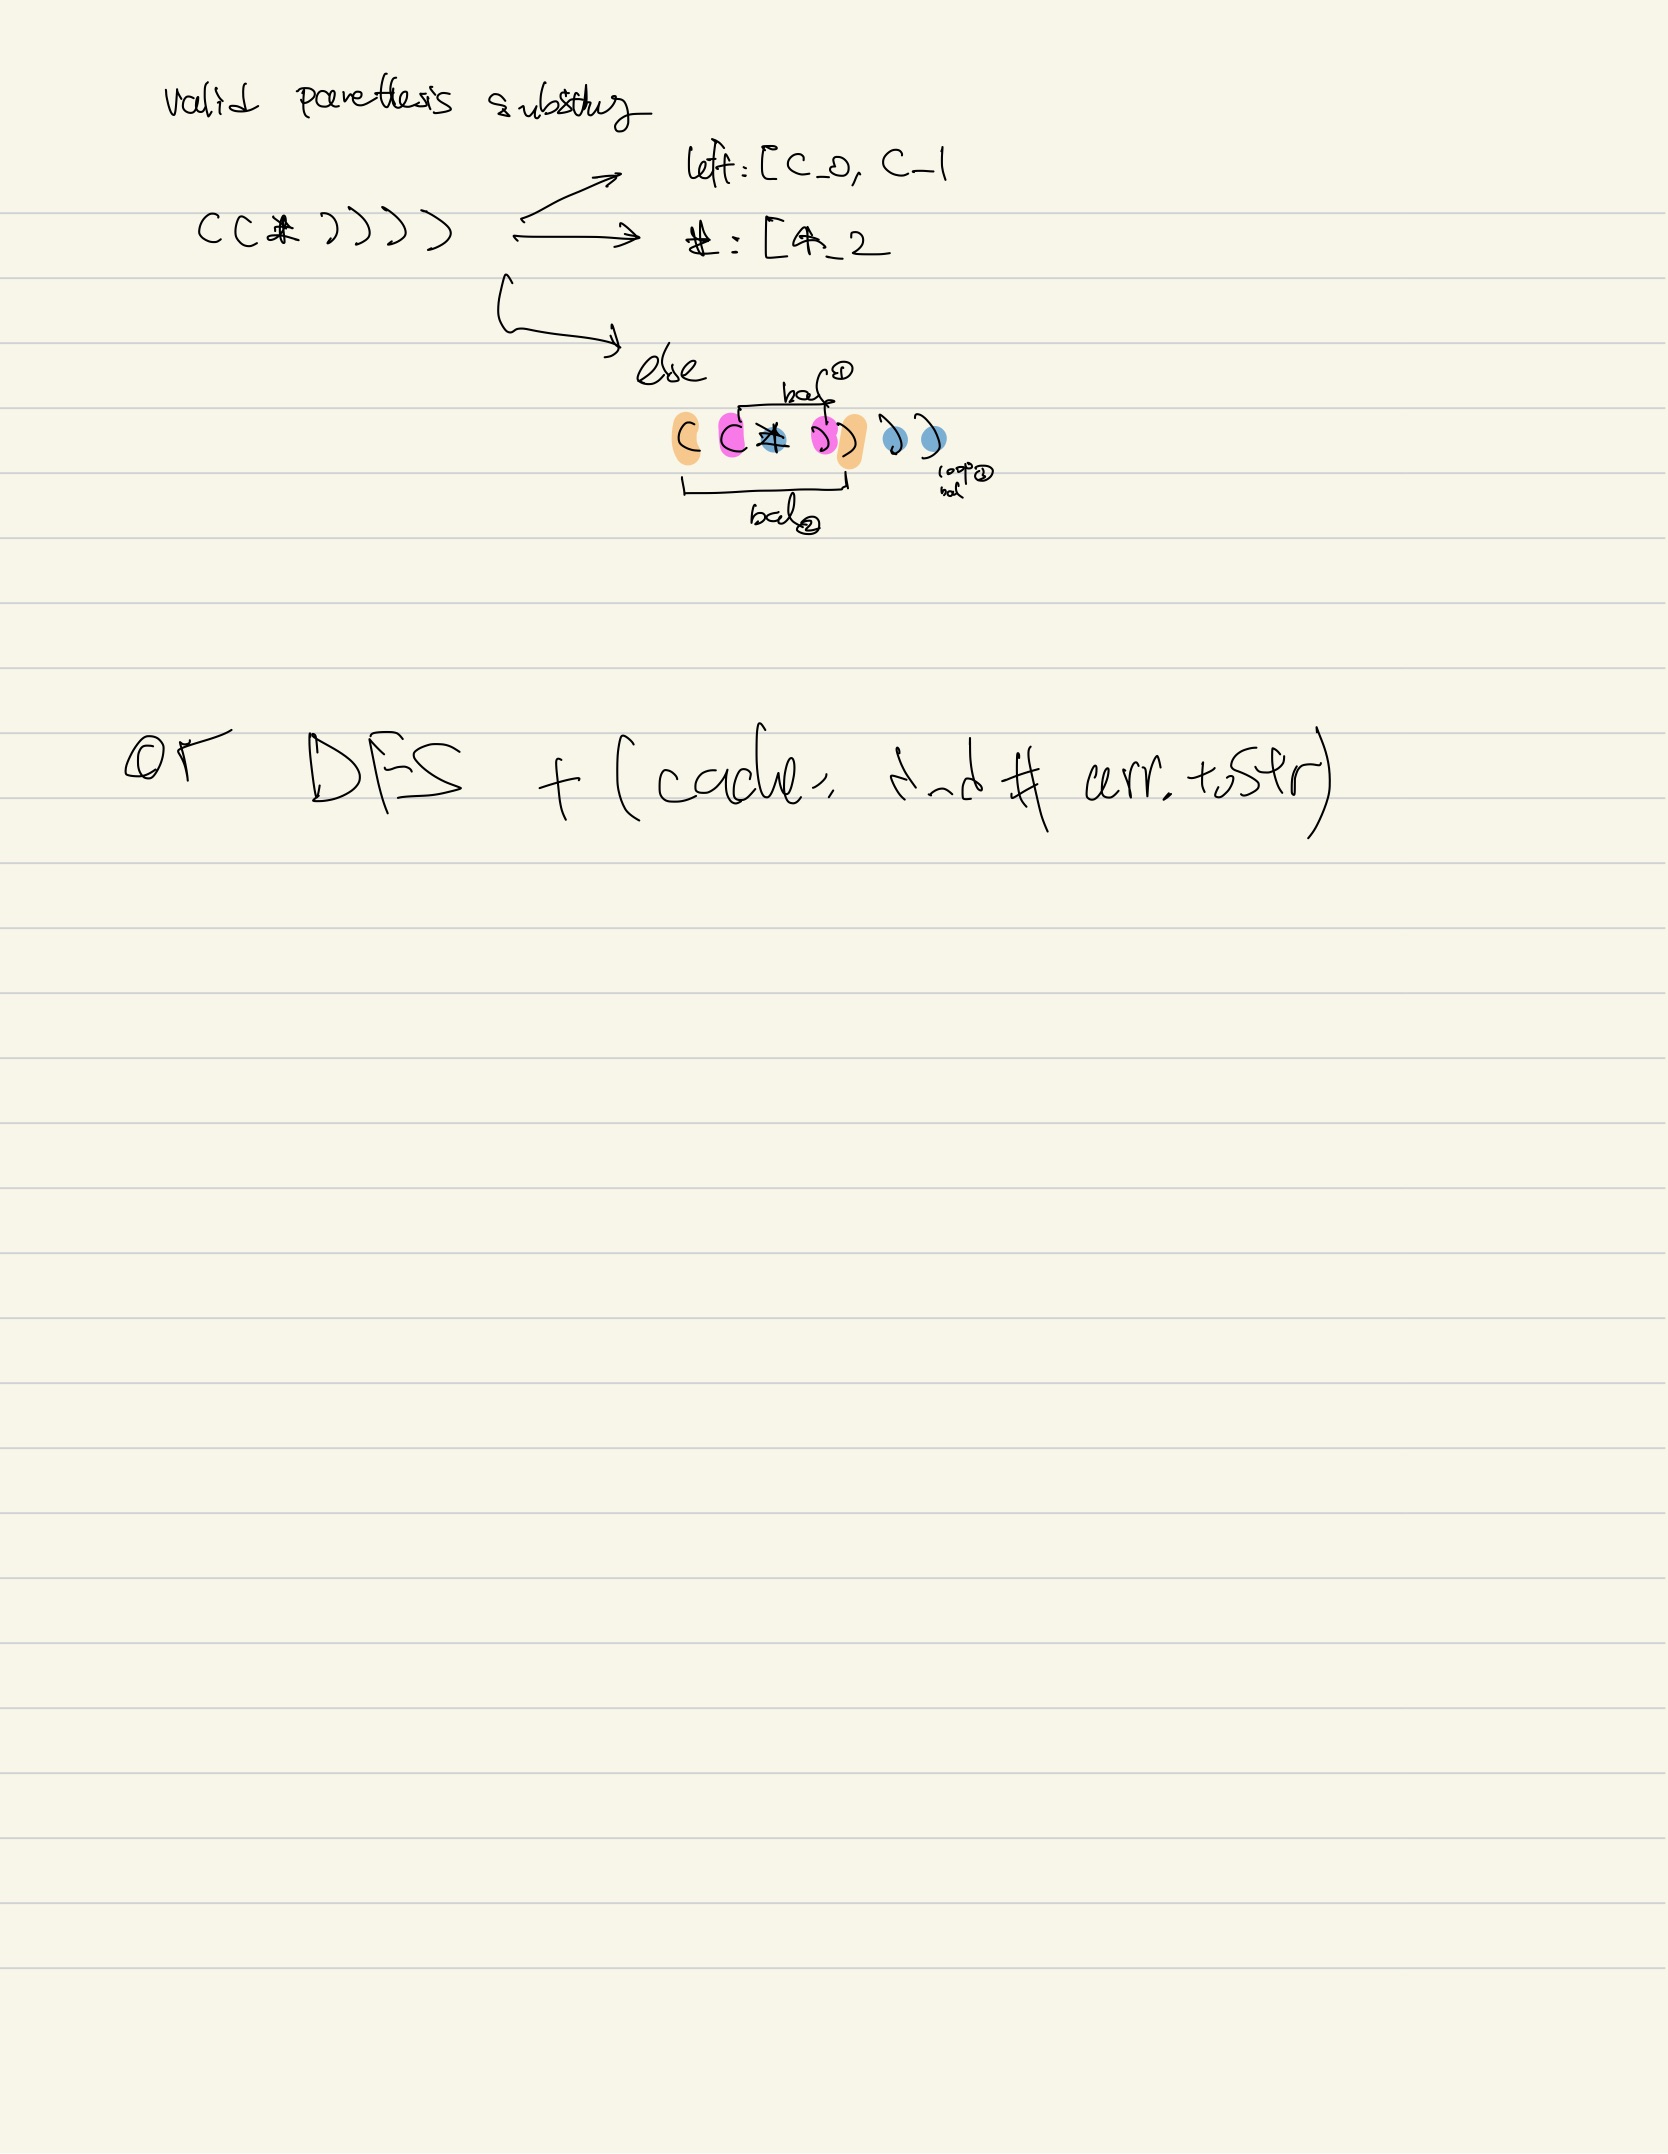 valid parethesis substring
left: [ ( _0, ( _1
( ( * ) ) ) )
* : [ * _ 2
else
bal ①
( ( * ) ) ) )
loop ③
bal
bal ②
or DFS + (cache: ind # arr.toStr)